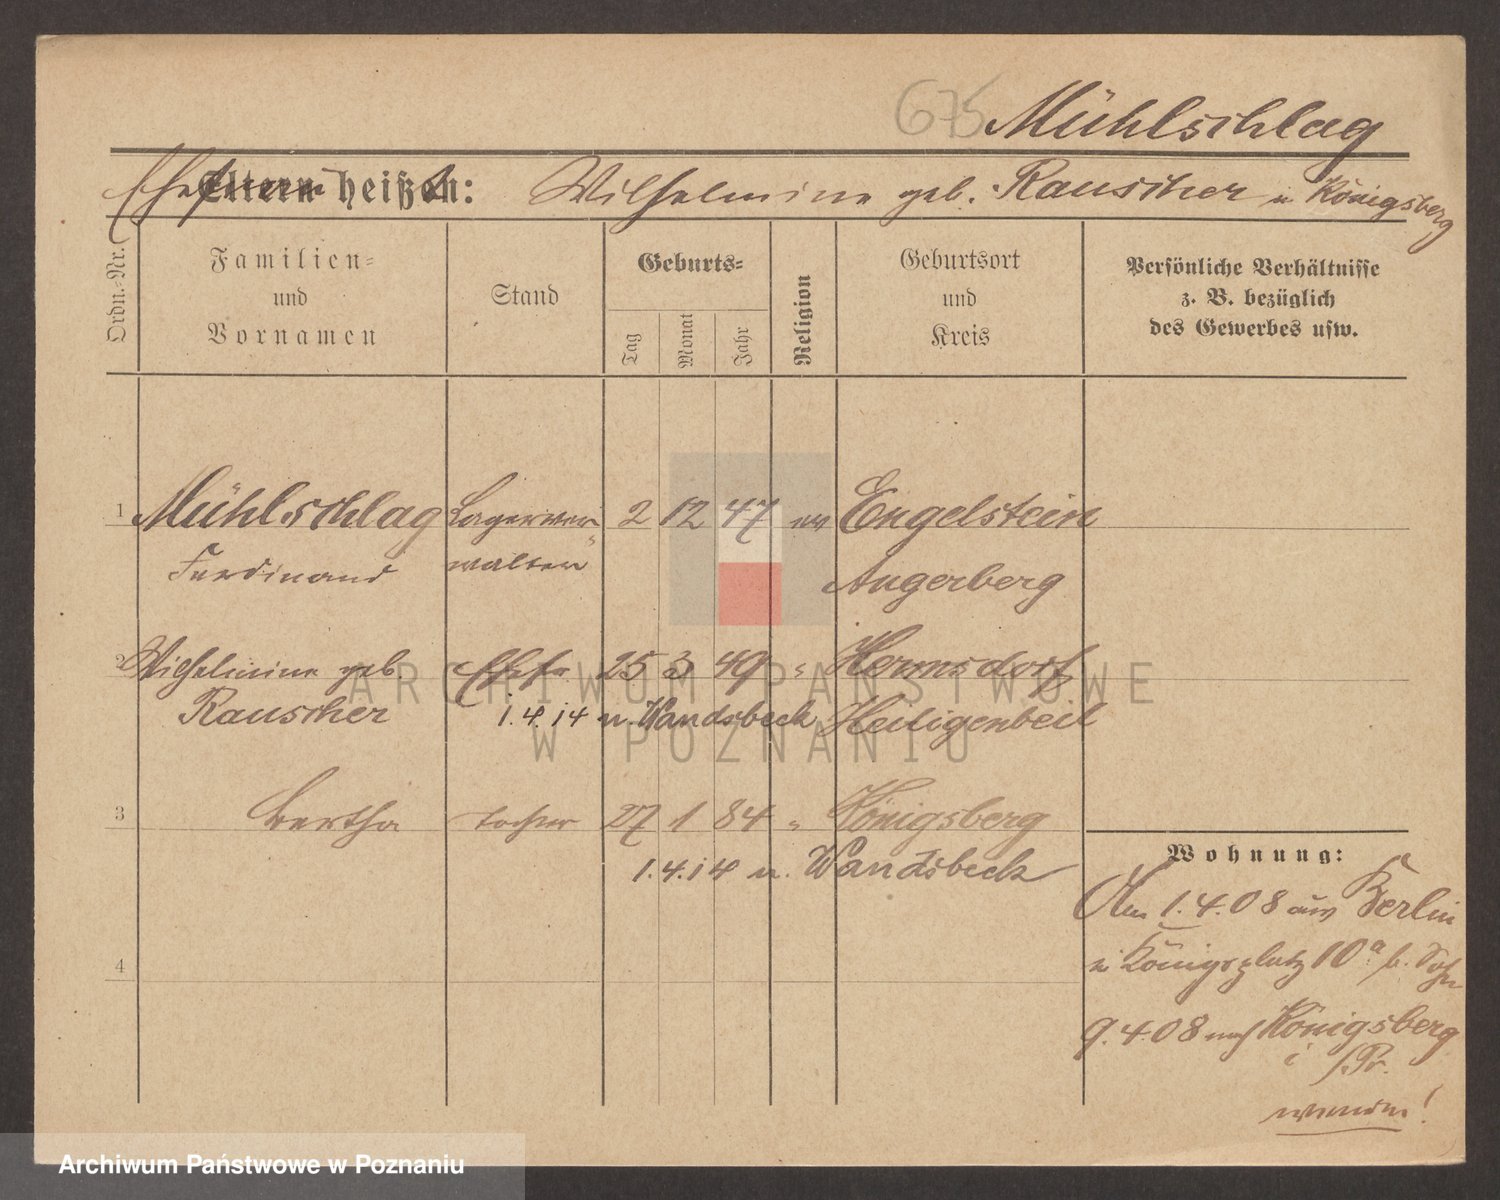 675 Mühlschlag
Eltern heißen: Wilhelmine geb. Rauscher in Königsberg
Ordn.-Nr.
Familien-
und
Vornamen
Stand
Geburts-
Tag
Monat
Jahr
Religion
Geburtsort
und
Kreis
Persönliche Verhältnisse
z. B. bezüglich
des Gewerbes usw.
1 Mühlschlag Lagerver- 2 12 47 ev Engelstein
Ferdinand walter Angerberg
2 Wilhelmine geb. Ehefr. 25 3 49 " Hermsdorf
Rauscher 1.4.14 n. Wandsbeck Heiligenbeil
3 Bertha Tochter 27 1 84 " Königsberg
1.4.14 n. Wandsbeck
4
Wohnung:
Am 1.4.08 aus Berlin
in Königsplatz 10a b. Sohn
9.4.08 nach Königsberg
i./Pr.
wenden!
ARCHIWUM PAŃSTWOWE
W POZNANIU
Archiwum Państwowe w Poznaniu